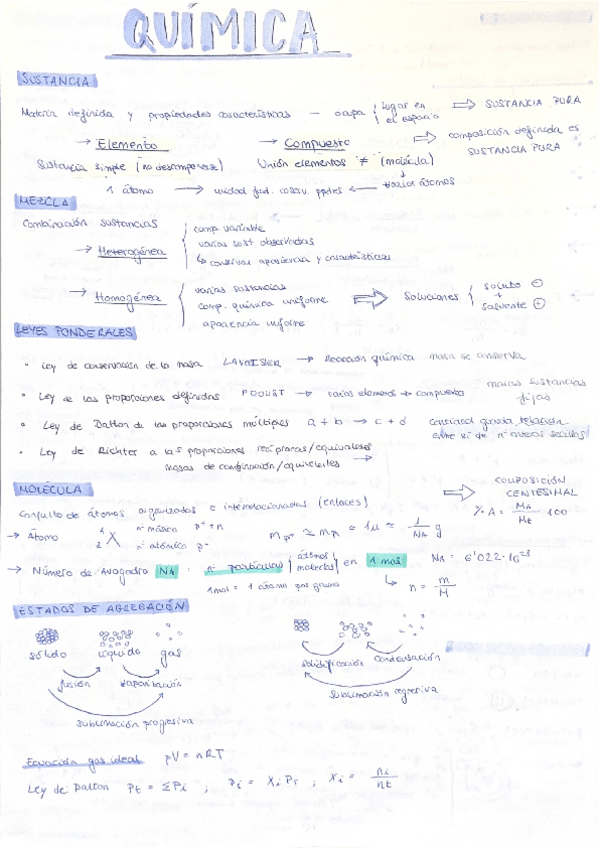 QUÍMICA
SUSTANCIA
Materia definida y propiedades características — ocupa lugar en el espacio ⇒ SUSTANCIA PURA
→ Elemento → Compuesto ⇒ composición definida es SUSTANCIA PURA
Sustancia simple (no descompone) Unión elementos ≠ (molécula)
1 átomo → unidad fund. conserv. ppdes ← varios átomos
MEZCLA
Combinación sustancias
→ Heterogénea
comp. variable
varias sust observadas
↳ conservan apariencia y características
→ Homogénea
varias sustancias
comp. química uniforme
apariencia uniforme
⇒ soluciones soluto ⊖ + solvente ⊕
LEYES PONDERALES
• Ley de conservación de la masa LAVOISIER → Reacción química masa se conserva
• Ley de las proporciones definidas PROUST → varios elementos → compuesto masas sustancias fijas
• Ley de Dalton de las proporciones múltiples a + b → c + d cantidad relación entre sí de nº enteros sencillos
• Ley de Richter a las proporciones recíprocas/equivalentes
masas de combinación/equivalentes →
MOLÉCULA
Conjunto de átomos organizados e interrelacionados (enlaces) ⇒ COMPOSICIÓN CENTESIMAL
→ Átomo A Z X nº másico p⁺ + n
nº atómico p⁺
≃ 1u ≃ 1/NA g
% A = MA/Mt · 100
→ Número de Avogadro NA : nº partículas átomos moléculas en 1 mol NA = 6'022·10²³
1 mol = 1 átomo por gramo ↳ n = m/M
ESTADOS DE AGREGACIÓN
sólido líquido gas
fusión vaporización
sublimación progresiva
solidificación condensación
sublimación regresiva
Ecuación gas ideal pV = nRT
Ley de Dalton Pt = ΣPi ; Pi = Xi PT ; Xi = ni/nt